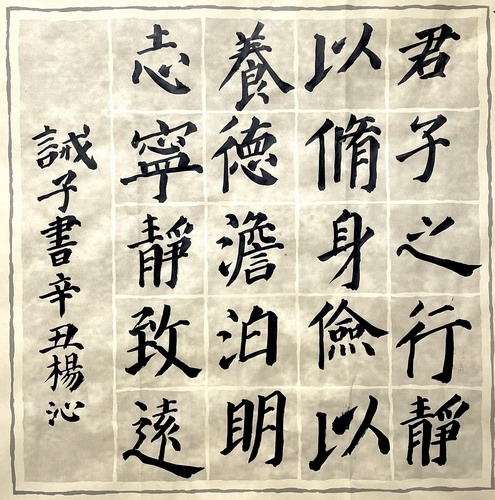 君子之行靜
以脩身儉以
養德澹泊明
志寧靜致遠
誡子書辛丑楊沁